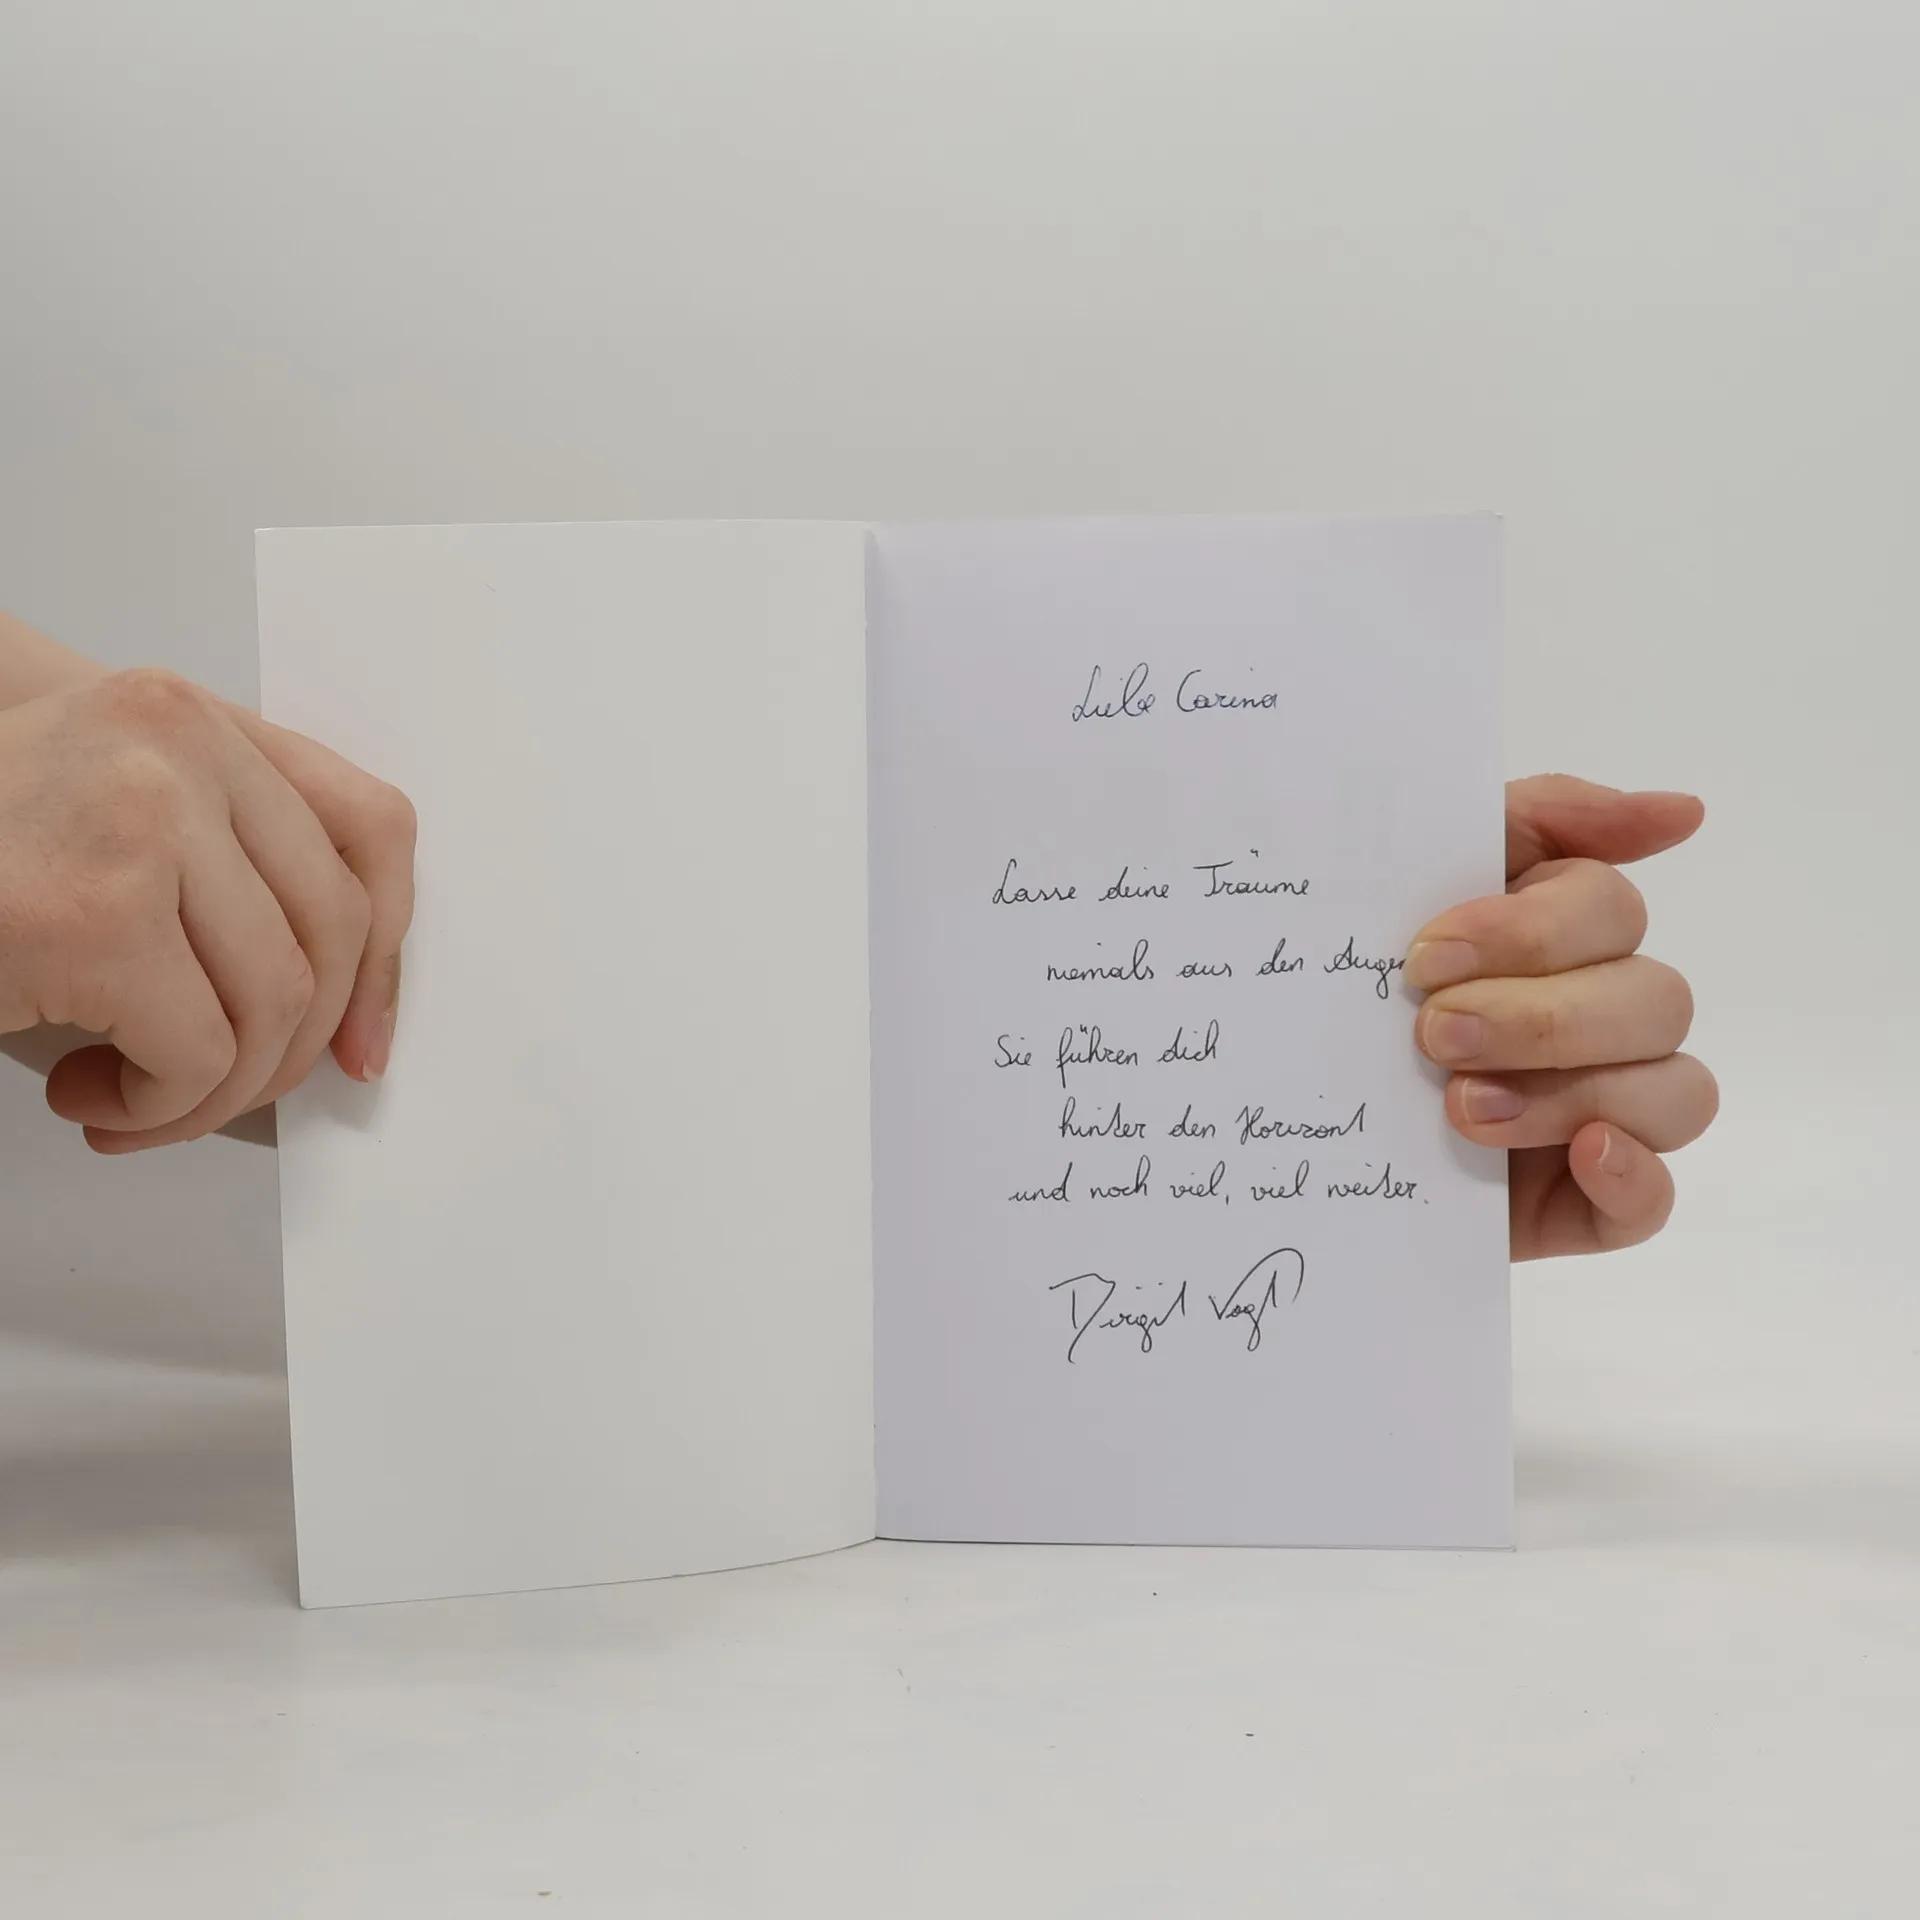 Liebe Carina
Lasse deine Träume
niemals aus den Augen
Sie führen dich
hinter den Horizont
und noch viel, viel weiter.
Birgit Vogt